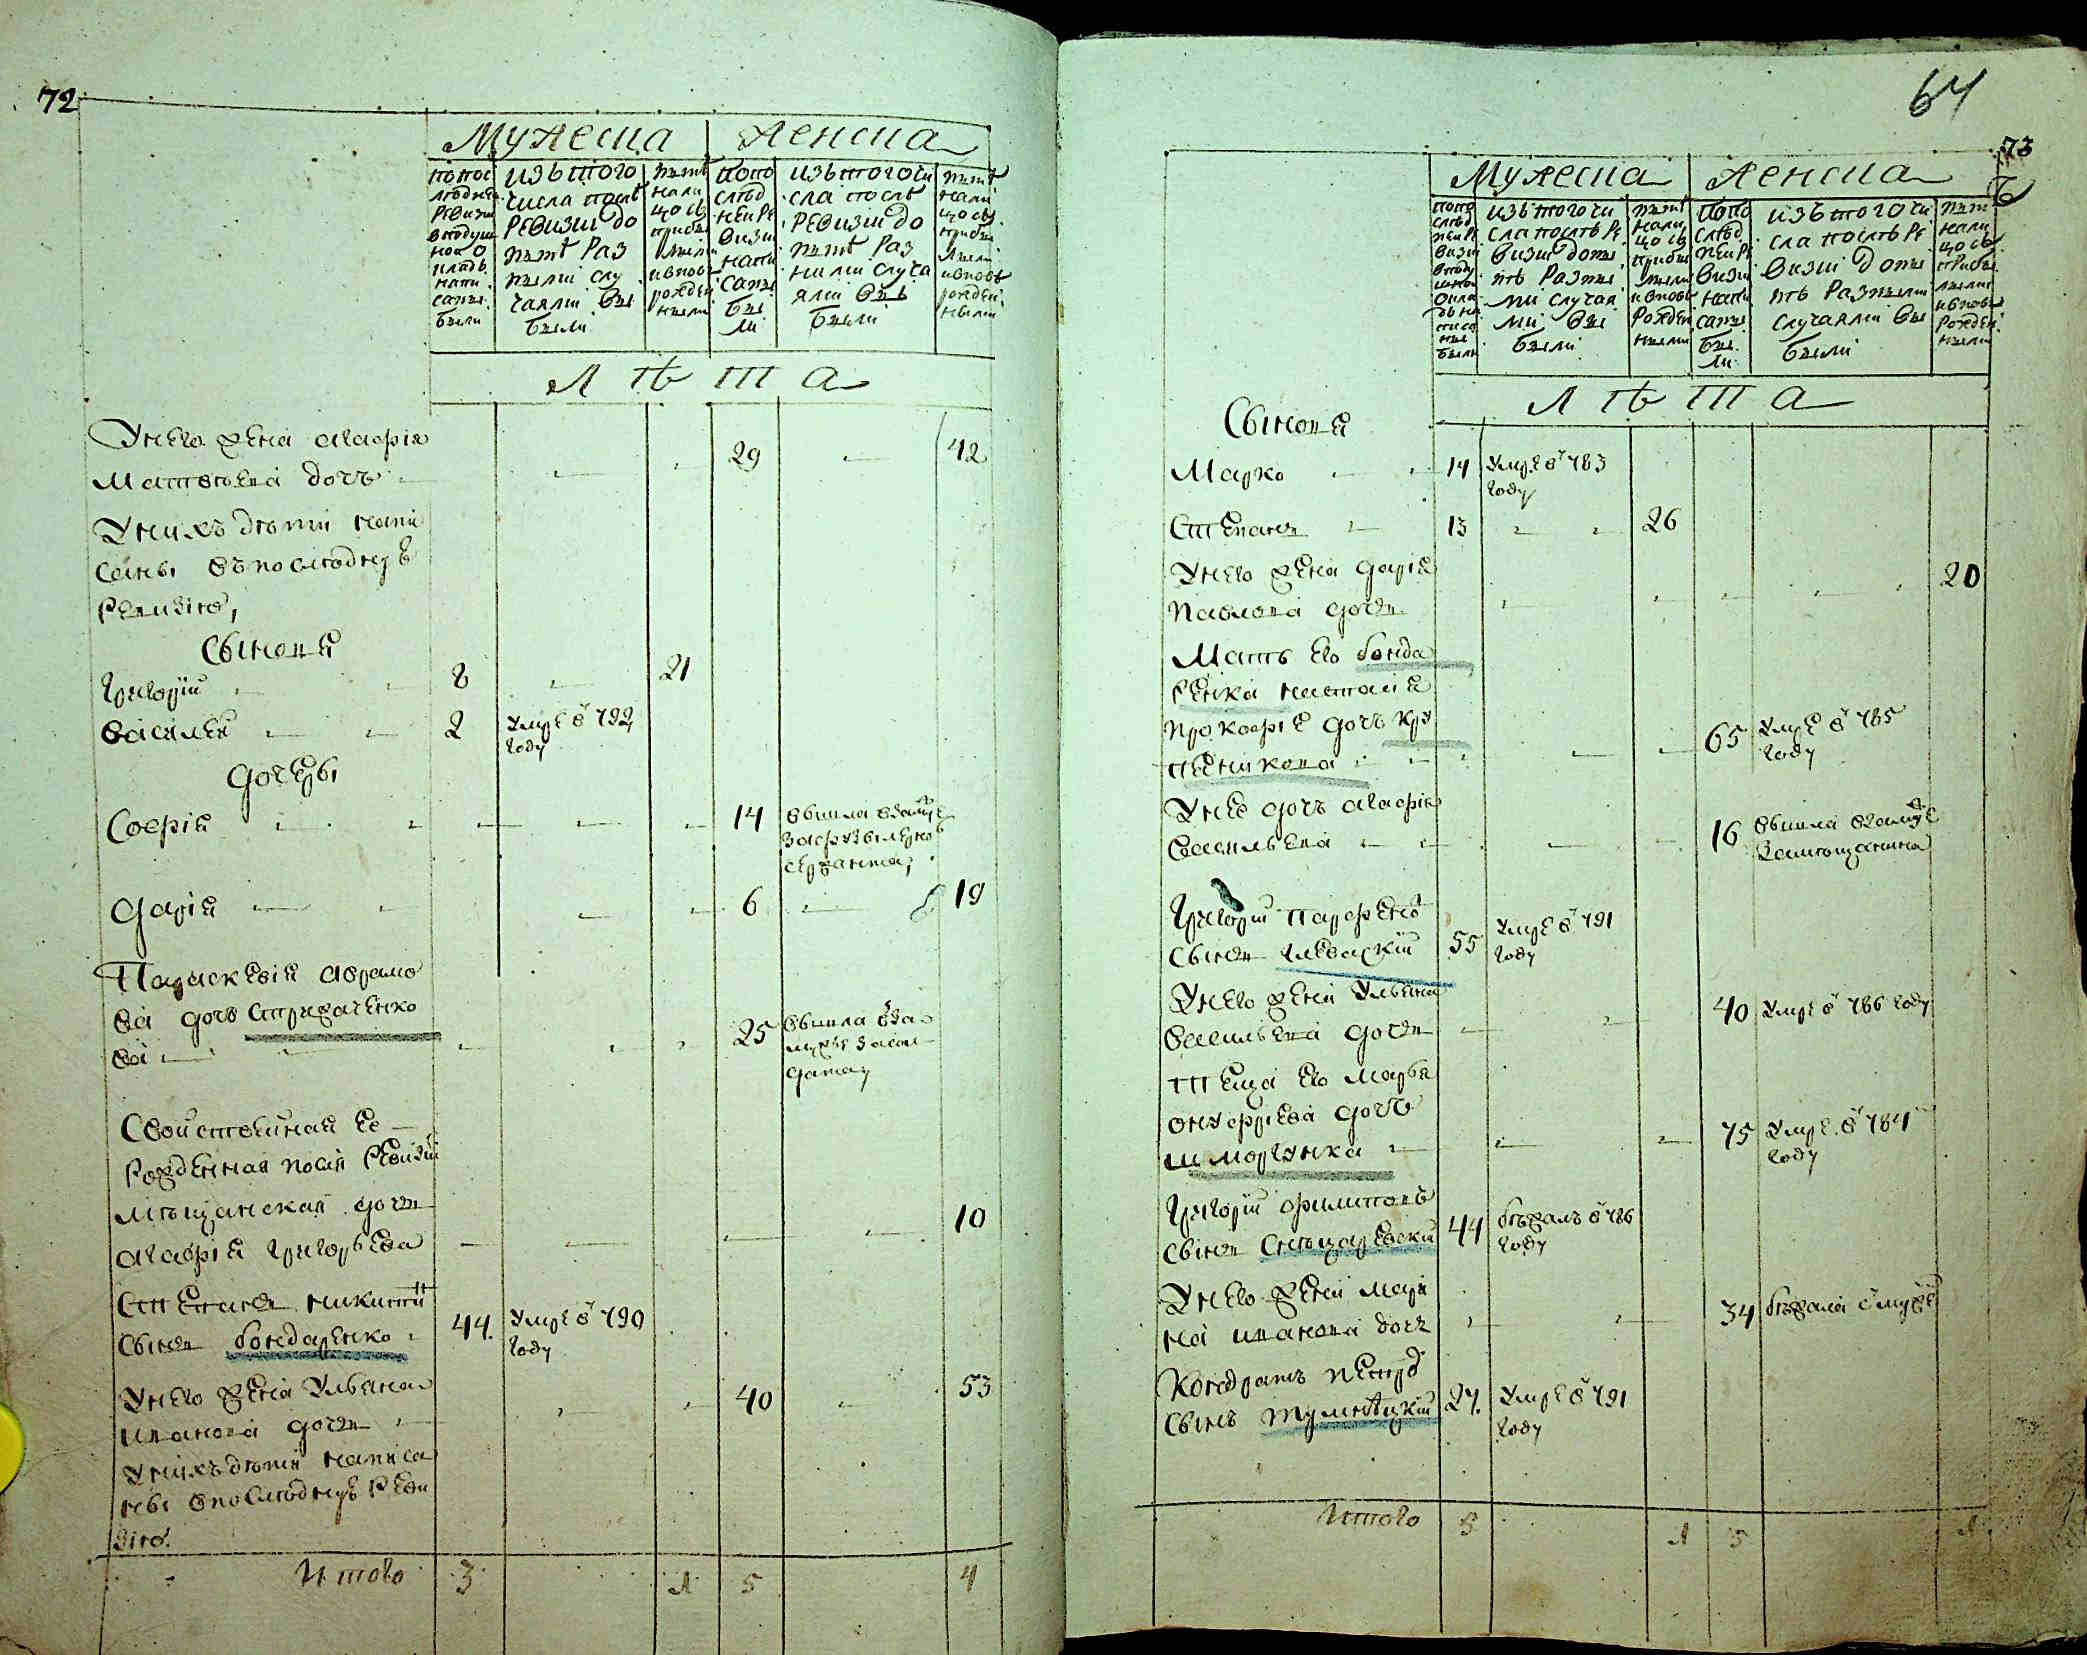 72
Мужеска
Женска
по пос
ледней
ревизии
в подуш
ной о
клад
напи
саны
были
изъ того
числа после
ревизии до
ныне раз
ными слу
чаями вы
были
ныне
нали
цо съ
прибы
лыми
и вновь
рожден
ными
по по
след
ней ре
визии
напи
саны
бы
ли
изъ того чи
сла после
ревизии до
ныне раз
ными случа
ями вы
были
ныне
нали
цо съ
прибы
лыми
и вновь
рожден
ными
Л ѣ т а
У него жена Агафія
29
42
Матвѣева дочь
У нихъ дѣти напи
саны въ последней
ревизіи,
Сыновя
Григорій
8
21
Василей
2
Умре в 792
году
Дочеры
Софія
14
вышла взамуж
сержанта,
Дарія
6
19
Параскевія Аврамо
ва дочь Стрижаченко
ва
25
вышла вза
мужъ за сол
дата
Свойственная ее
рожденная посля ревизіи
мѣщанская дочь
Агафія Григорьева
10
Степанъ Никитин
сынъ Бондаренко
44
Умре в 790
году
У него жена Ульяна
40
53
Иванова дочь
У нихъ дѣти написа
ны в последней реви
зіи.
Итого
3
1
5
4
64
73
Мужеска
Женска
по по
след
ней ре
визии
в поду
шной
окла
дъ на
писа
ны
были
изъ того чи
сла после ре
визии до ны
нѣ разны
ми случая
ми вы
были
ныне
нали
цо съ
прибы
лыми
и вновь
рожден
ными
по по
след
ней ре
визии
напи
саны
бы
ли
изъ того чи
сла после ре
визии до ны
нѣ разными
случаями вы
были
ныне
нали
цо съ
прибы
лыми
и вновь
рожден
ными
Л ѣ т а
Сыновя
Марко
14
Умре в 783
году
Степанъ
13
26
У него жена Дарія
20
Павлова дочь
Мать его Бонда
ренка Наталія
Прокофіе дочь Кру
пенникова
65
Умре в 785
году
У нее дочь Агафія
Васильева
16
вышла взамуже
за мѣщанина
Григорій Парфенов
сынъ Глеваскій
55
Умре в 791
году
У него жена Ульяна
40
Умре в 786 году
Васильева дочь
Теща его Марья
Онуфріева дочь
Шморгунка
75
Умре в 784
году
Григорій Филиповъ
сынъ Снѣцаревски
44
бежалъ в 786
году
У него жена Мари
34
бежала с мужем
на Иванова дочь
Кондратъ Петров
сынъ Тумнѣцкій
27
Умре в 791
году
Итого
5
1
5
1